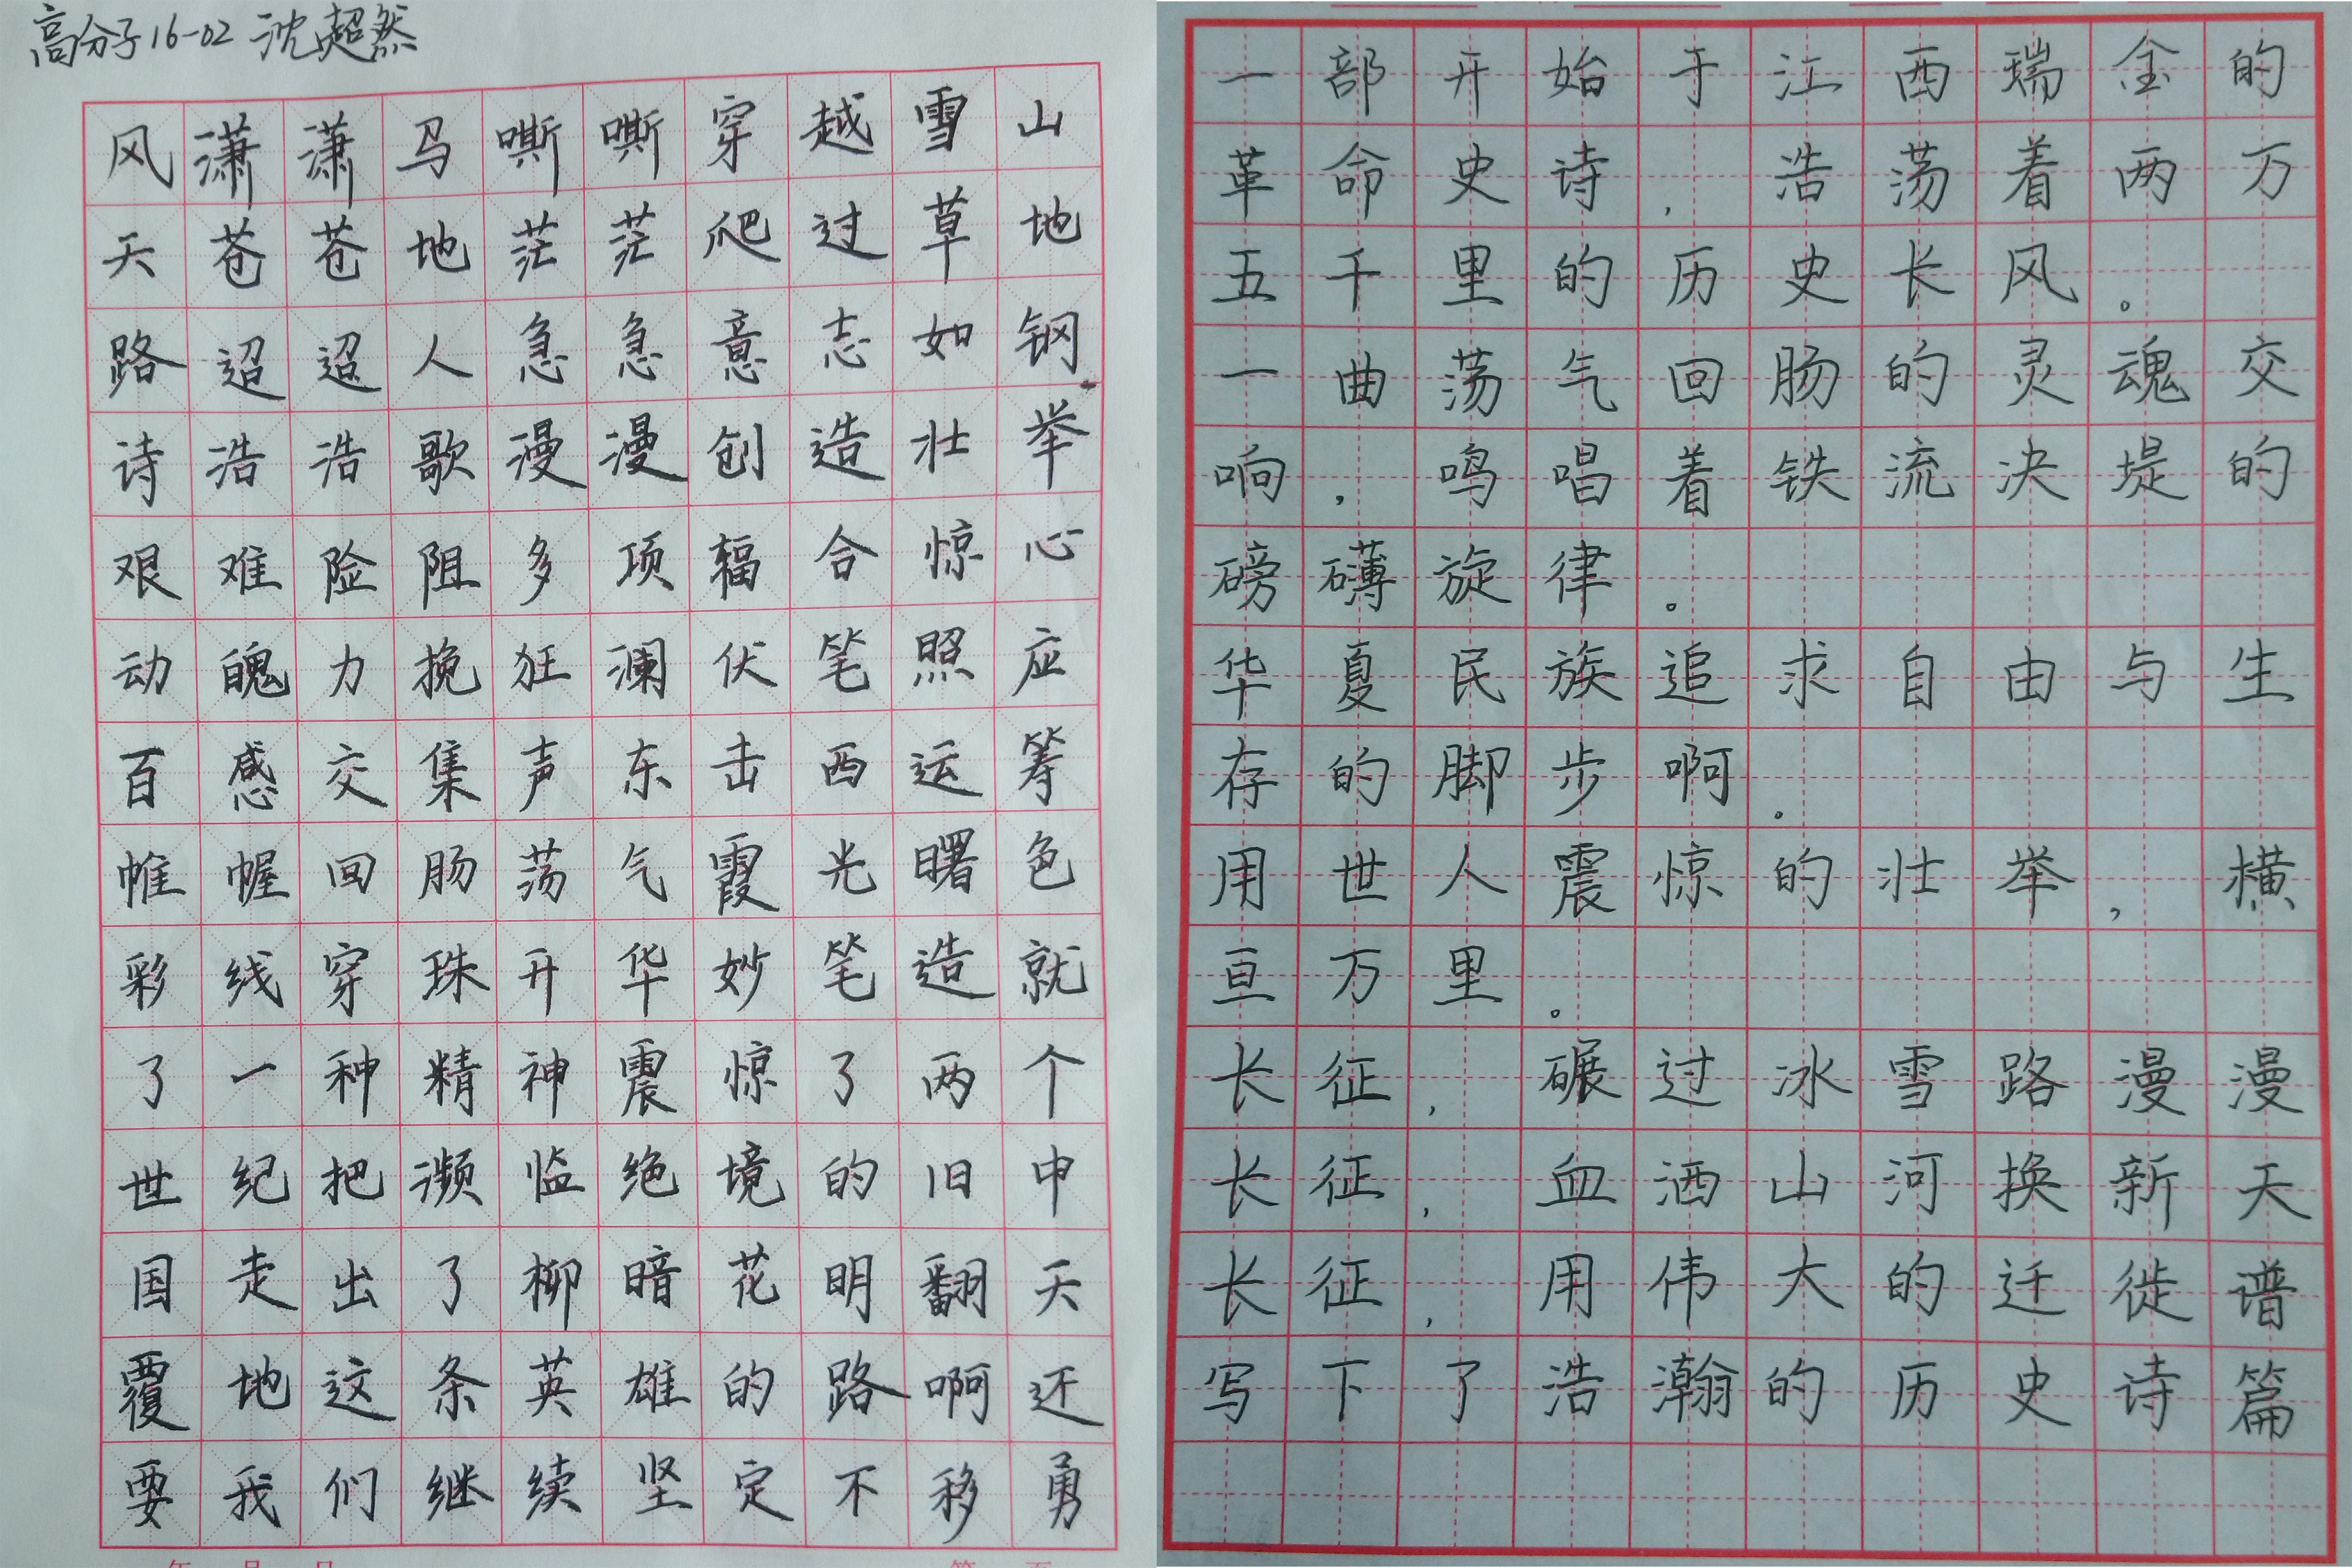 高分子16-02 沈超然
风潇潇马嘶嘶穿越雪山
天苍苍地茫茫爬过草地
路迢迢人急急意志如钢
诗浩浩歌漫漫创造壮举
艰难险阻多项辐合惊心
动魄力挽狂澜伏笔照应
百感交集声东击西运筹
帷幄回肠荡气霞光曙色
彩线穿珠开华妙笔造就
了一种精神震惊了两个
世纪把濒临绝境的旧中
国走出了柳暗花明翻天
覆地这条英雄的路啊还
要我们继续坚定不移勇
一部开始于江西瑞金的
革命史诗,浩荡着两万
五千里的历史长风。
一曲荡气回肠的灵魂交
响,鸣唱着铁流决堤的
磅礴旋律。
华夏民族追求自由与生
存的脚步啊。
用世人震惊的壮举,横
亘万里。
长征,碾过冰雪路漫漫
长征,血洒山河换新天
长征,用伟大的迁徙谱
写下了浩瀚的历史诗篇